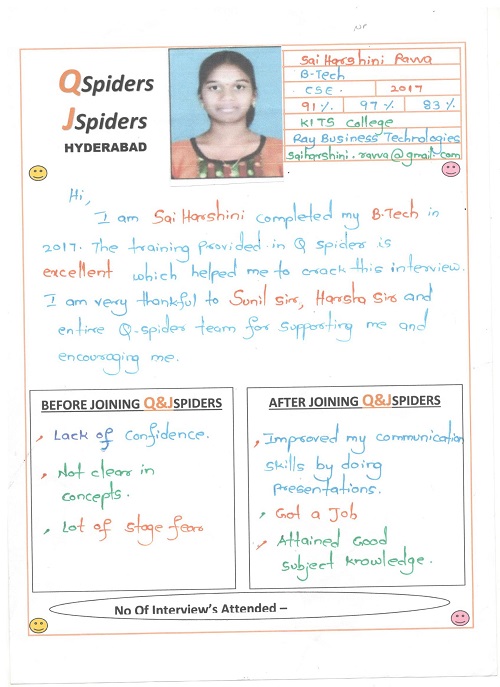 QSpiders
JSpiders
HYDERABAD
Sai Harshini Ravva
B-Tech
CSE. 2017
91% 97% 83%
KITS College
Ray Business Technologies
saiharshini.ravva@gmail.com
Hi,
I am Sai Harshini completed my B.Tech in
2017. The training provided in Q spider is
excellent which helped me to crack this interview.
I am very thankful to Sunil sir, Harsha Sir and
entire Q-spider team for supporting me and
encouraging me.
BEFORE JOINING Q&JSPIDERS
Lack of Confidence.
Not clear in
concepts.
Lot of stage fear
AFTER JOINING Q&JSPIDERS
Improved my communication
skills by doing
presentations.
Got a Job
Attained Good
subject knowledge.
No Of Interview's Attended –